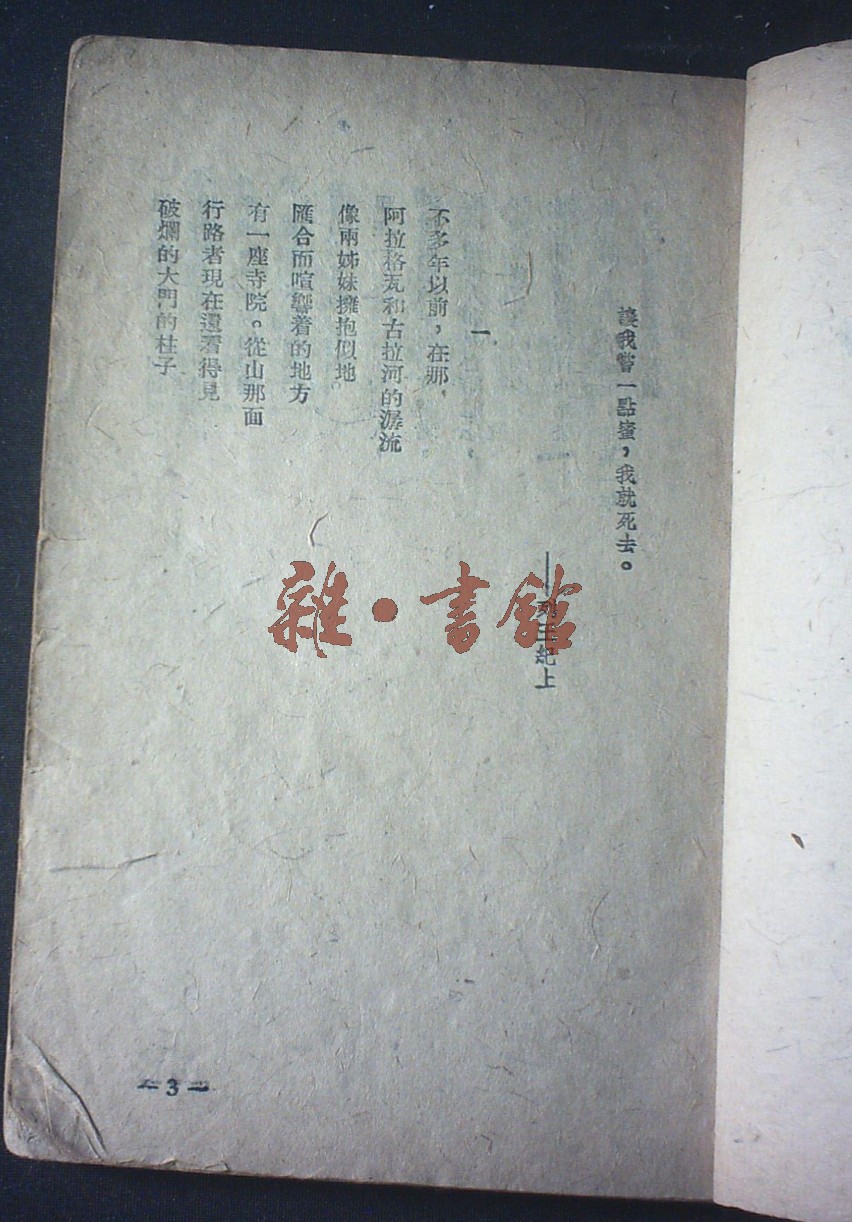 讓我嘗一點蜜，我就死去。
——列王紀上
一
不多年以前，在那，
阿拉格瓦和古拉河的潺流
像兩姊妹擁抱似地，
匯合而喧響着的地方
有一座寺院。從山那面
行路者現在還看得見
破爛的大門的柱子
雜·書館
—3—